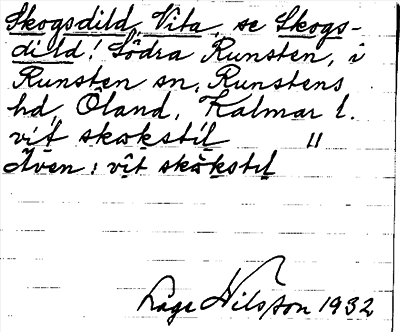 Skogsdild, Vita, se Skogs-
dild! Södra Runsten, i
Runsten sn, Runstens
hd, Öland, Kalmar l.
vit skokstil "
Även: vit skökstil
Lage Nilsson 1932